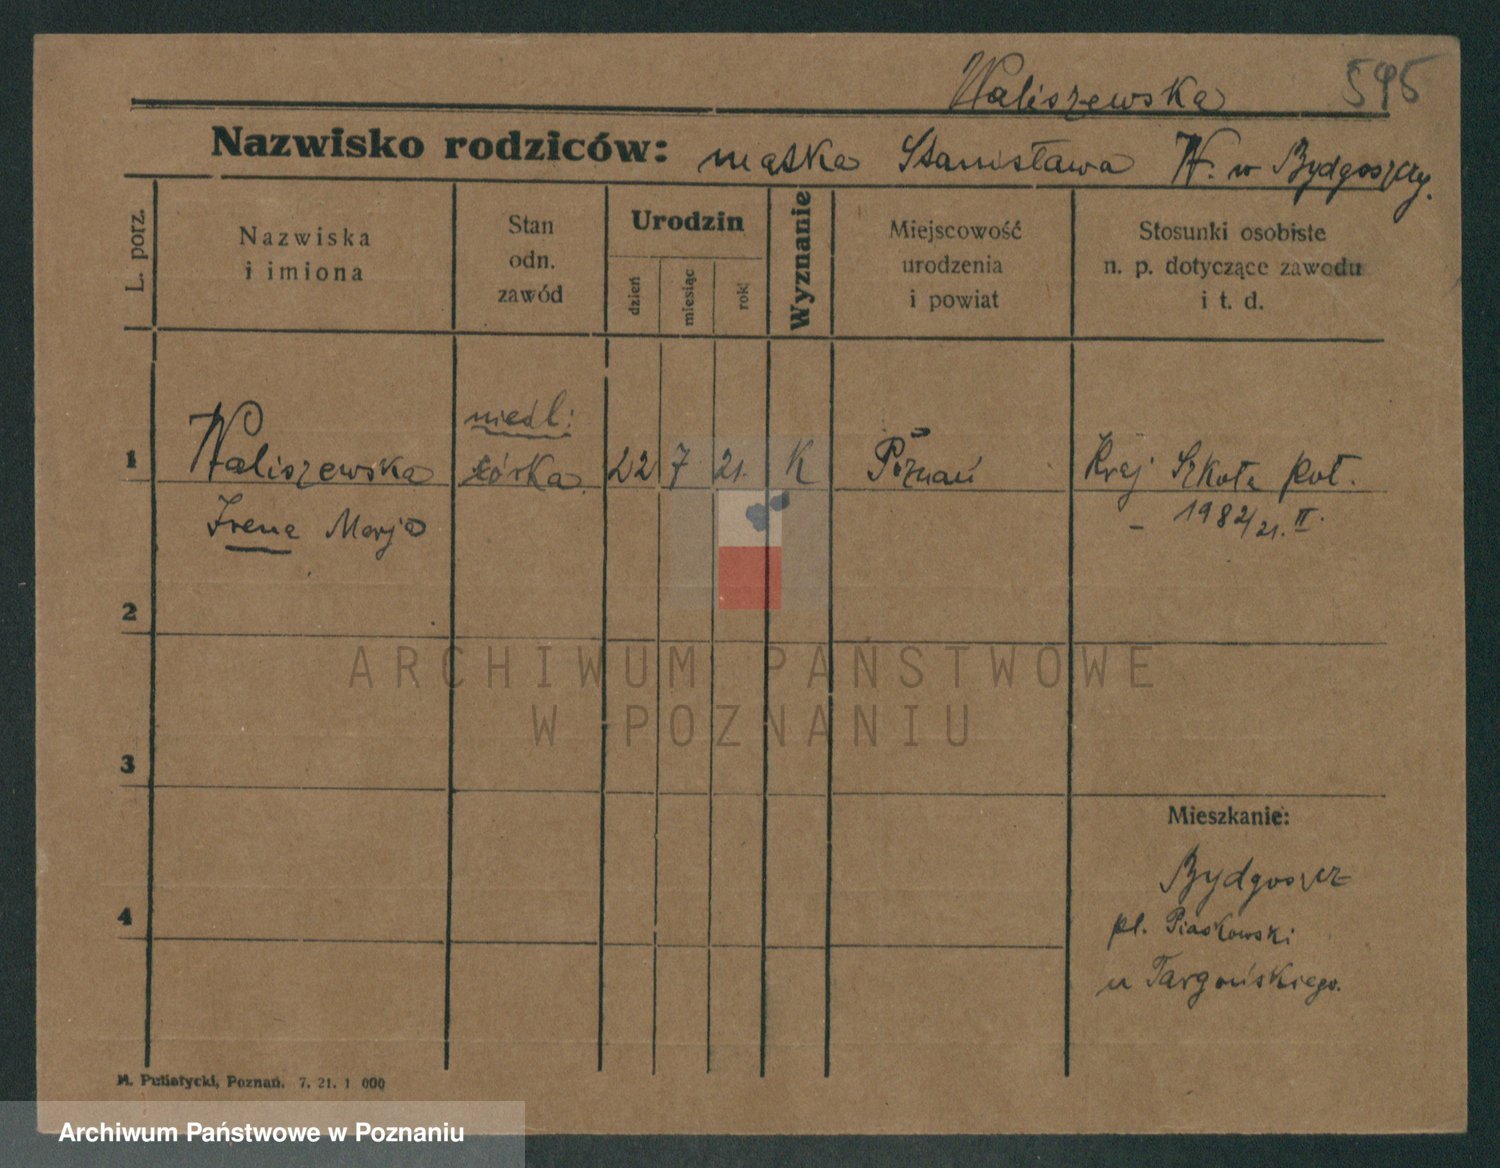 Waliszewska 595
Nazwisko rodziców: matka Stanisława W. w Bydgoszczy.
L. porz.
Nazwiska
i imiona
Stan
odn.
zawód
Urodzin
dzień
miesiąc
rok
Wyznanie
Miejscowość
urodzenia
i powiat
Stosunki osobiste
n. p. dotyczące zawodu
i t. d.
niedl:
1 Waliszewska córka 22 7 21. K Poznań Kraj Szkoła Poł.
Irena Marja – 1982/21. II.
2
ARCHIWUM PAŃSTWOWE
W POZNANIU
3
Mieszkanie:
Bydgoszcz
4 pl. Piaskowski
u Targońskiego.
M. Putiatycki, Poznań. 7. 21. 1 000
Archiwum Państwowe w Poznaniu